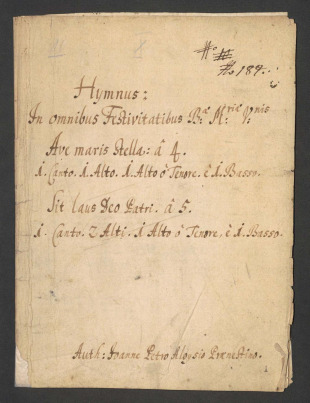 No 189.
Hymnus:
In omnibus Festivitatibus B.æ M.riæ V.gnis
Ave maris stella: â 4.
1. Canto. 1. Alto. 1. Alto ò Tenore. è 1. Basso.
Sit laus Deo Patri. â 5.
1. Canto. 2 Alti. 1 Alto ò Tenore, è 1. Basso.
Auth: Joanne Petro Aloysio Prænestino.